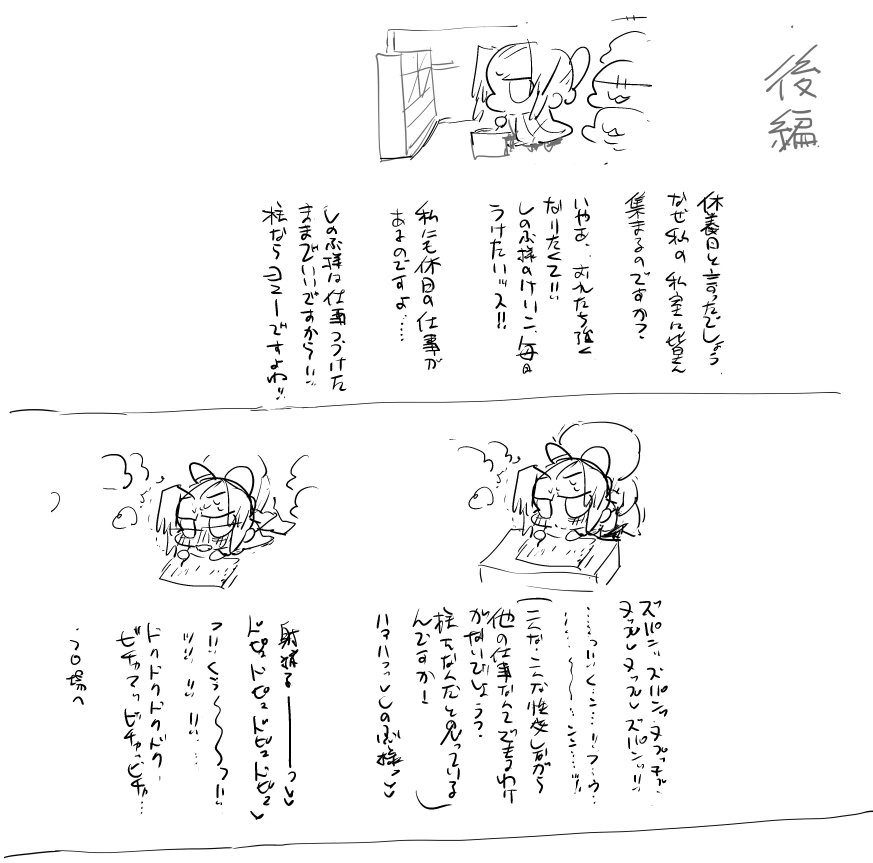 後編
休養日と言ったでしょう、
なぜ私の私室に皆さん
集まるのですか?
いやぁ、おれたち強く
なりたくて!!
しのぶ様のけいこ、毎日
うけたいッス!!
私にも休日の仕事が
あるのですよ……
しのぶ様は仕事つづけた
ままでいいですから!!
柱ならヨユーですよね!!
ズパンッズパンッ
ヌプルルヌプルルズパンッ!!
(こんな…こんな性交しながら
他の仕事なんてできるわけ
がないでしょう?
柱をなんだと思っている
んですか!)
ハァハァっ♡しのぶ様っ♡♡
射精るーーーっ♡♡
ドピュドピュドピュドピュ♡
っ!!くぅ〜〜〜っ!!
ドクドクドクドク
フロ場へ